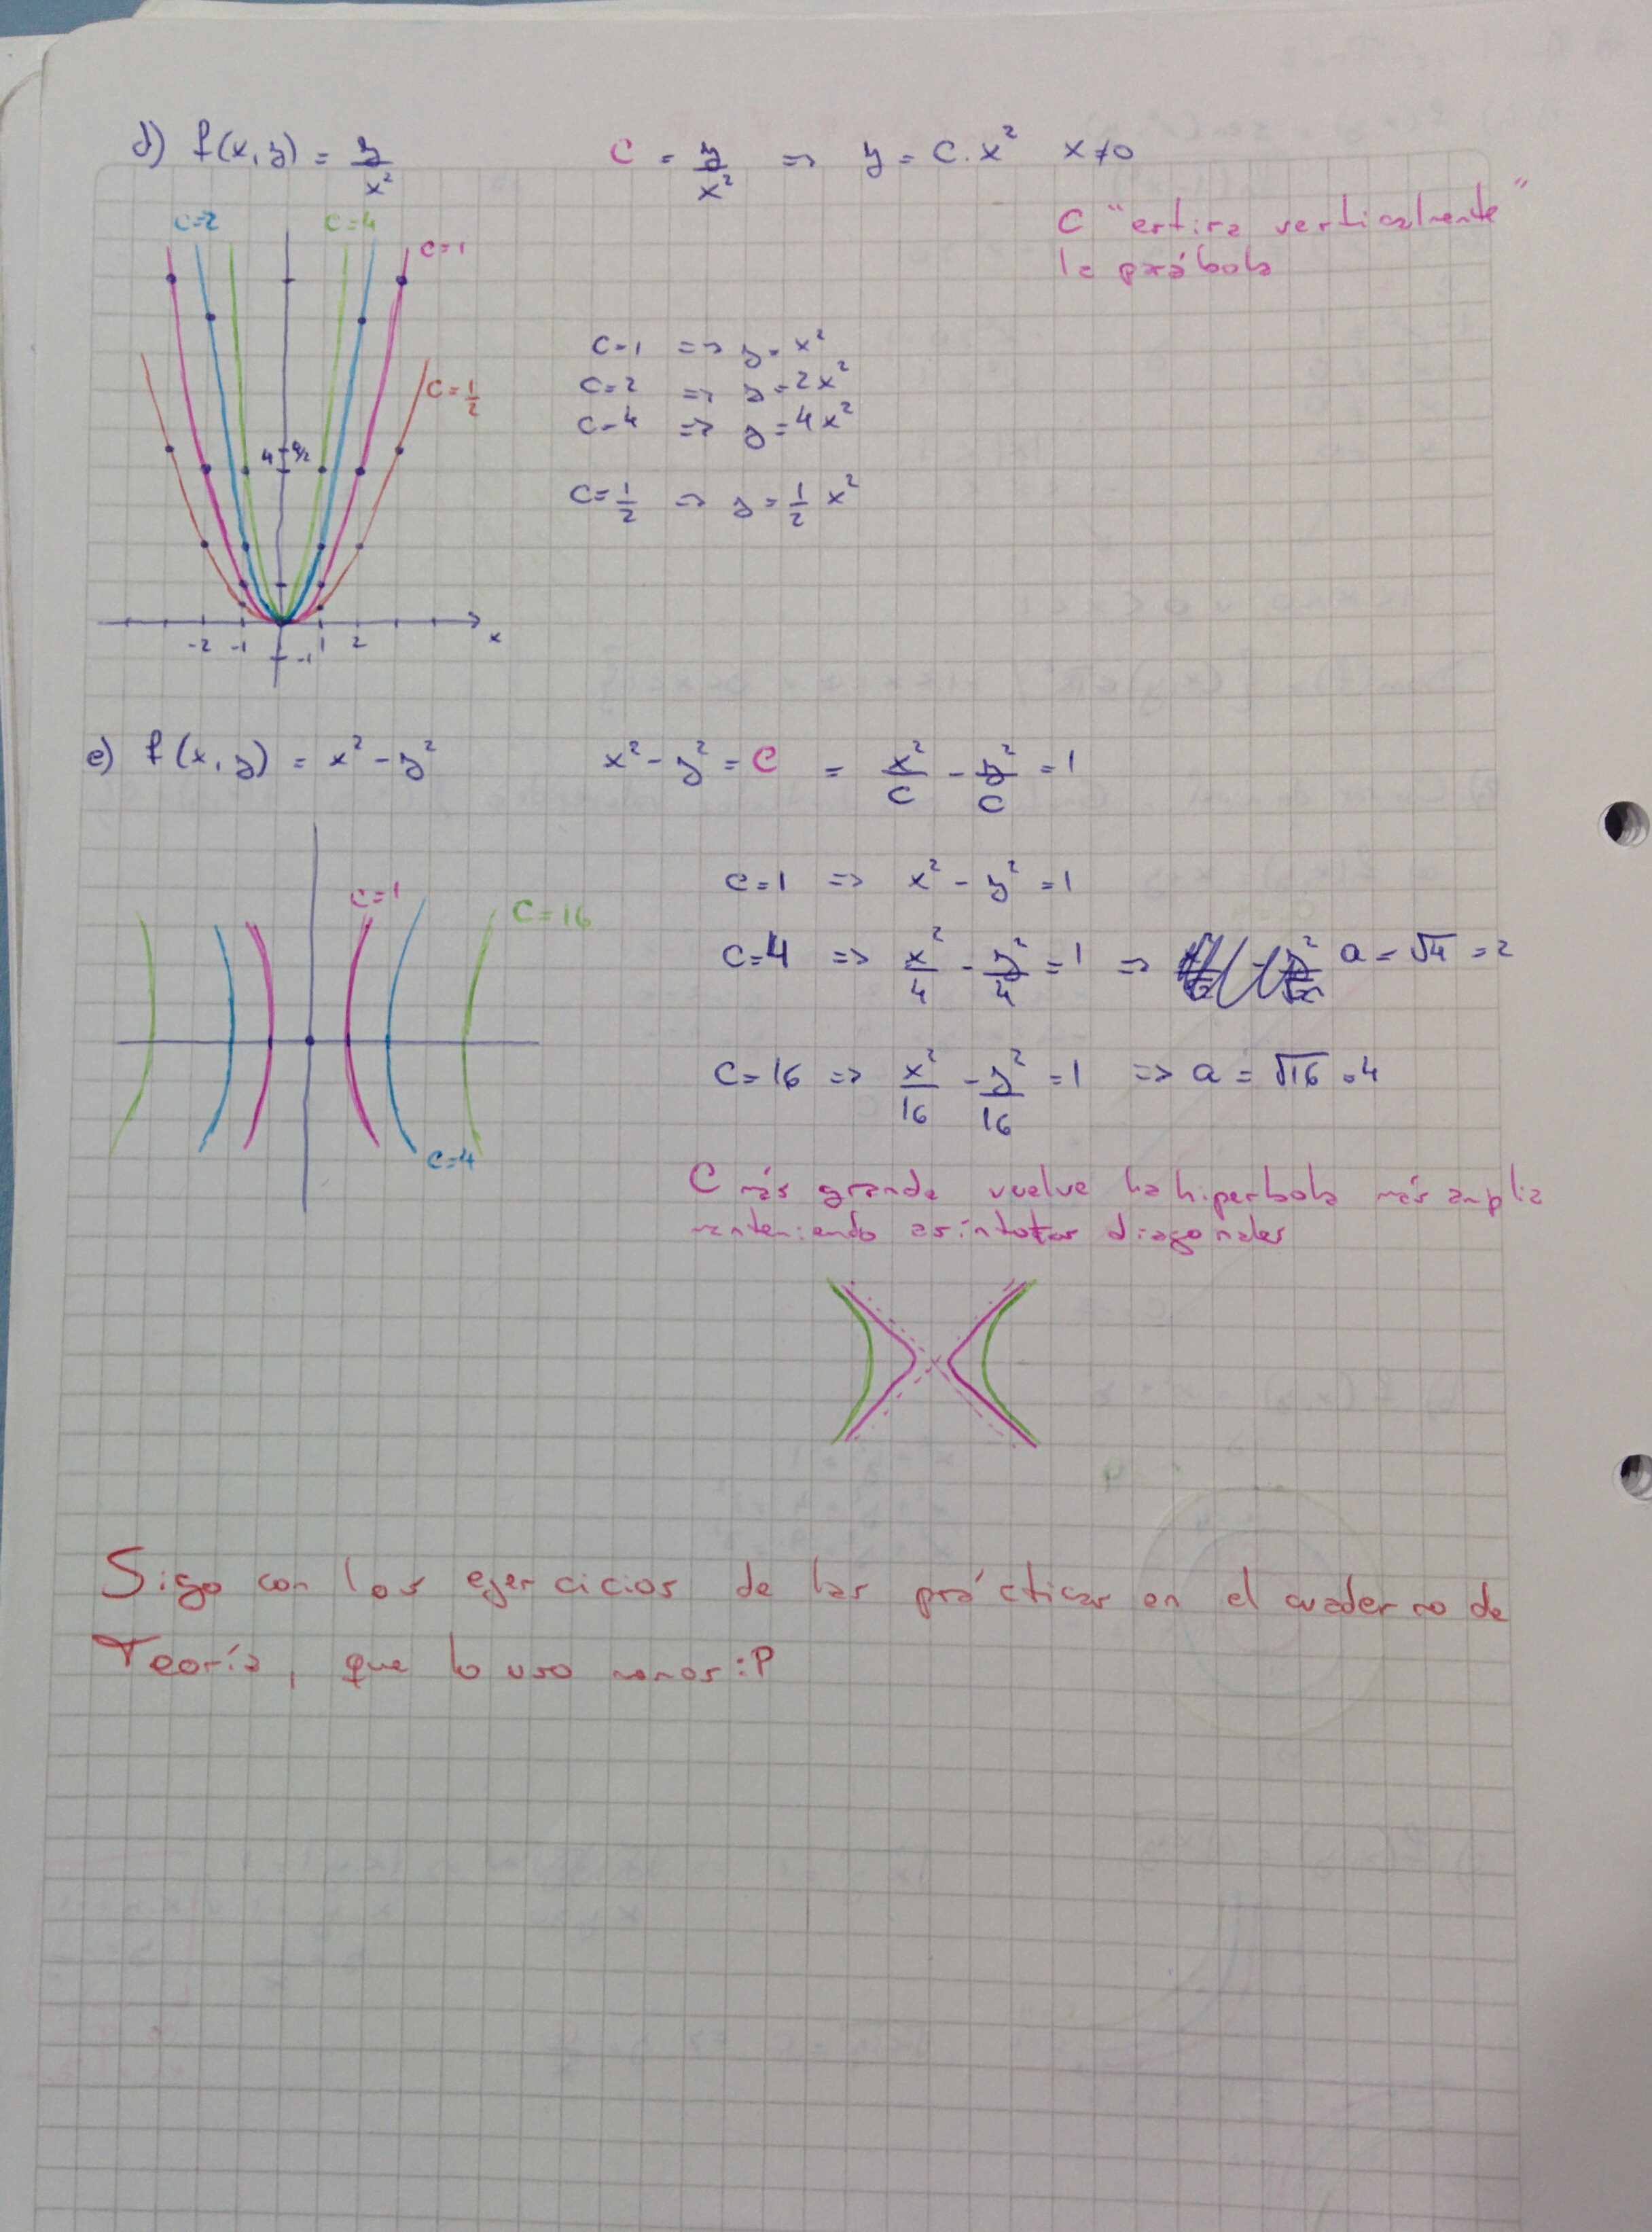 d) f(x,y) = y/x² C = y/x² => y = C.x² x≠0
C "estira verticalmente"
la parábola
C=2 C=4 C=1
C=1/2
4 9/2
-2 -1 1 2 x
-1
C=1 => y = x²
C=2 => y = 2x²
C=4 => y = 4x²
C=1/2 => y = 1/2 x²
e) f(x,y) = x² - y² x² - y² = C = x²/C - y²/C = 1
C=1 C=16
C=4
C=1 => x² - y² = 1
C=4 => x²/4 - y²/4 = 1 => a = √4 = 2
C=16 => x²/16 - y²/16 = 1 => a = √16 = 4
C más grande vuelve la hiperbola más amplia
manteniendo asíntotas diagonales
Sigo con los ejercicios de las prácticas en el cuaderno de
Teoría, que lo uso menos :P